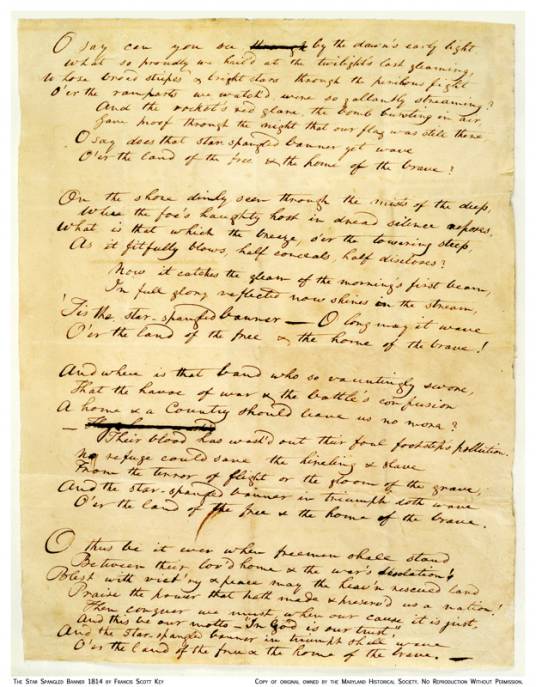 O say can you see ~~through~~ by the dawn's early light
What so proudly we hail'd at the twilight's last gleaming,
Whose broad stripes & bright stars through the perilous fight
O'er the ramparts we watch'd, were so gallantly streaming?
And the rocket's red glare, the bomb bursting in air,
Gave proof through the night that our flag was still there
O say does that star-spangled banner yet wave
O'er the land of the free & the home of the brave?
On the shore dimly seen through the mists of the deep,
Where the foe's haughty host in dread silence reposes,
What is that which the breeze, o'er the towering steep,
As it fitfully blows, half conceals, half discloses?
Now it catches the gleam of the morning's first beam,
In full glory reflected now shines in the stream,
'Tis the star-spangled banner — O long may it wave
O'er the land of the free & the home of the brave!
And where is that band who so vauntingly swore,
That the havoc of war & the battle's confusion
A home & a Country should leave us no more?
—
Their blood has wash'd out their foul footstep's pollution.
No refuge could save the hireling & slave
From the terror of flight or the gloom of the grave,
And the star-spangled banner in triumph doth wave
O'er the land of the free & the home of the brave.
O thus be it ever when freemen shall stand
Between their lov'd home & the war's desolation!
Blest with vict'ry & peace may the heav'n rescued land
Praise the power that hath made & preserv'd us a nation!
Then conquer we must, when our cause it is just,
And this be our motto - "In God is our trust,"
And the star-spangled banner in triumph shall wave
O'er the land of the free & the home of the brave. —
The Star Spangled Banner 1814 by Francis Scott Key
Copy of original owned by the Maryland Historical Society. No Reproduction Without Permission.